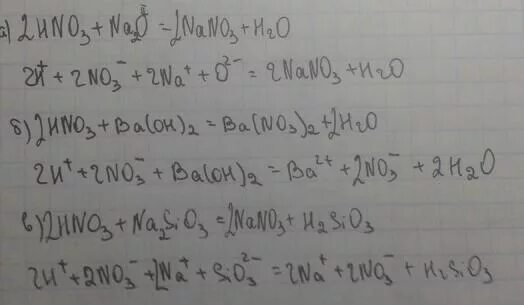 а) 2HNO₃ + Na₂O = 2NaNO₃ + H₂O
2H⁺ + 2NO₃⁻ + 2Na⁺ + O²⁻ = 2NaNO₃ + H₂O
б) 2HNO₃ + Ba(OH)₂ = Ba(NO₃)₂ + 2H₂O
2H⁺ + 2NO₃⁻ + Ba(OH)₂ = Ba²⁺ + 2NO₃⁻ + 2H₂O
в) 2HNO₃ + Na₂SiO₃ = 2NaNO₃ + H₂SiO₃
2H⁺ + 2NO₃⁻ + 2Na⁺ + SiO₃²⁻ = 2Na⁺ + 2NO₃⁻ + H₂SiO₃